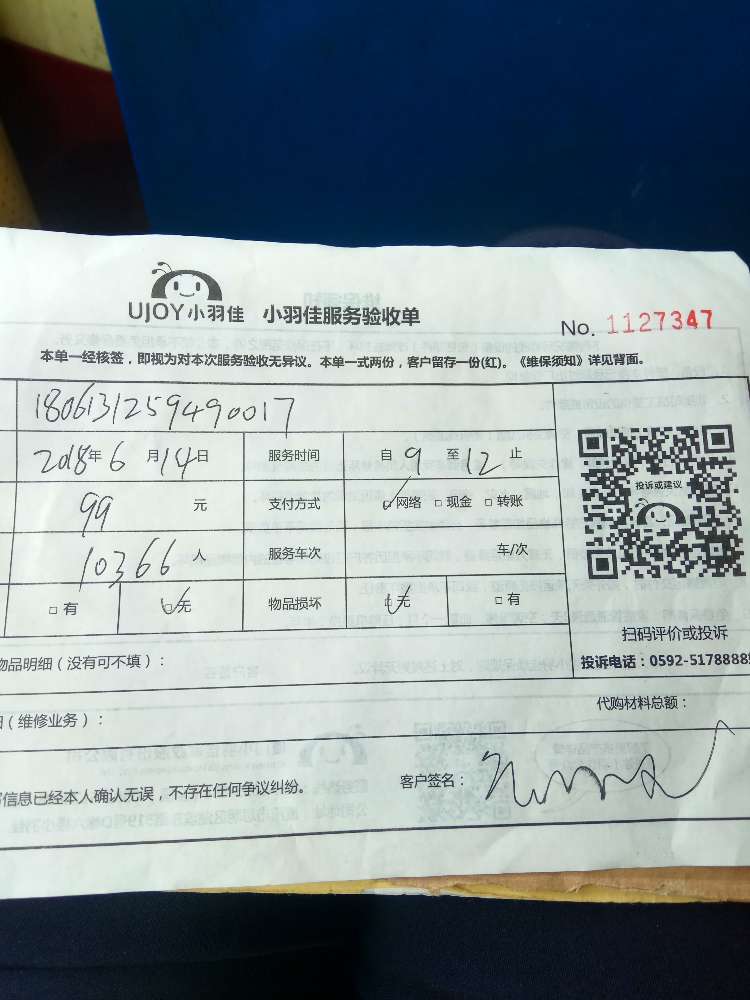 UJOY小羽佳 小羽佳服务验收单
No. 1127347
本单一经核签，即视为对本次服务验收无异议。本单一式两份，客户留存一份(红)。《维保须知》详见背面。
1806131259490017
2018年6月14日 服务时间 自9至12止
99 元 支付方式 ☑网络 □现金 □转账
10366 人 服务车次 车/次
□有 ☑无 物品损坏 ☑无 □有
投诉或建议
扫码评价或投诉
物品明细（没有可不填）：
投诉电话：0592-5178888
代购材料总额：
（维修业务）：
信息已经本人确认无误，不存在任何争议纠纷。
客户签名：